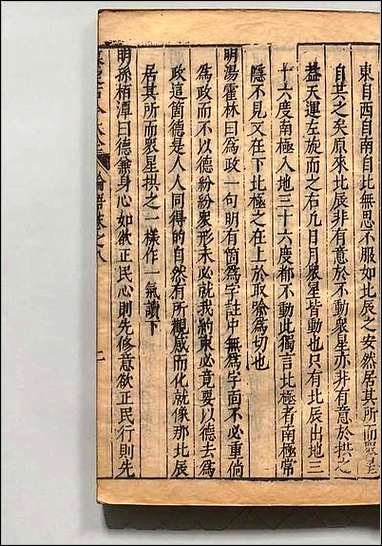 東自西自南自北無思不服如比辰之安然居其所而眾星
自共之矣原來比辰非有意於不動衆星亦非有意於拱之
葢天運左旋而之右凡日月衆星皆動也只有比辰出地三
十六度南極入地三十六度都不動此獨言比極者南極常
隱不見又在下比極之在上於取喻為切也
明湯霍林曰爲政一句明有箇爲字註中無爲字面不必重倘
爲政而不以德紛紛衆形未必就我約束必竟要以德去爲
政這箇德是人人同得的自然有所觀感而化就像那北辰
居其所而衆星拱之一樣作一氣讀下
明孫栢潭曰德兼身心如欲正民心則先修意欲正民行則先
論語卷之八